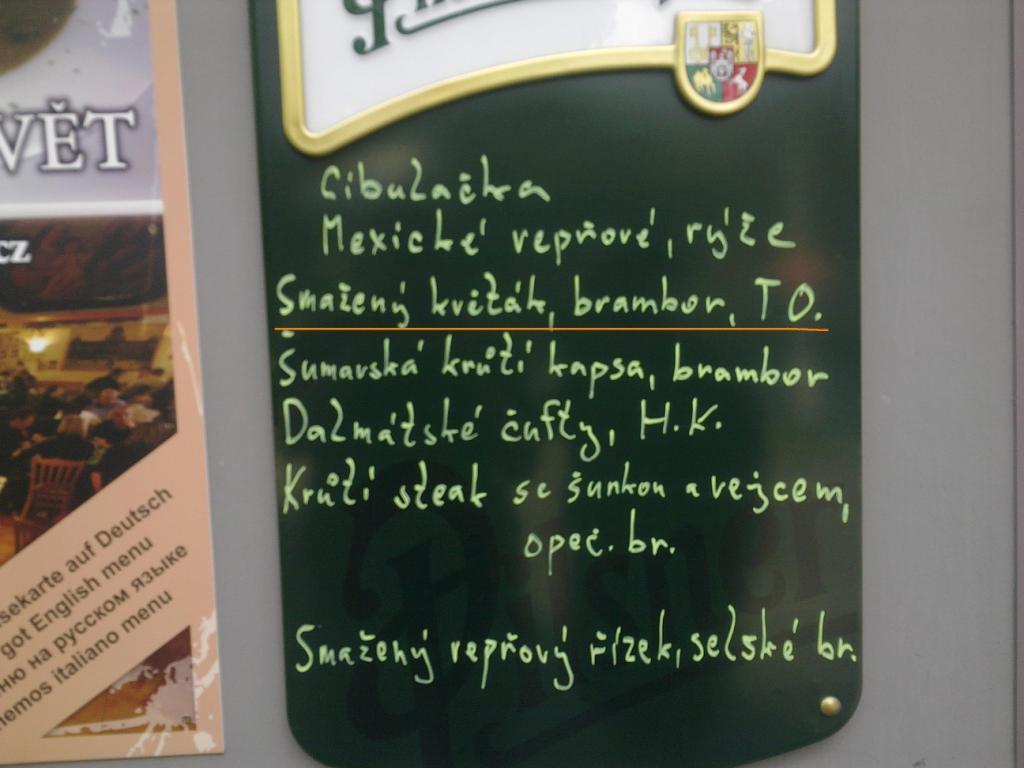 VĚT
cz
Cibulačka
Mexické vepřové, rýže
Smažený květák, brambor, TO.
Šumavská krůtí kapsa, brambor
Dalmátské čufty, H.K.
Krůtí steak se šunkou a vejcem,
opeč. br.
Smažený vepřový řízek, selské br.
Pilsner
sekarte auf Deutsch
got English menu
ню на русском языке
emos italiano menu